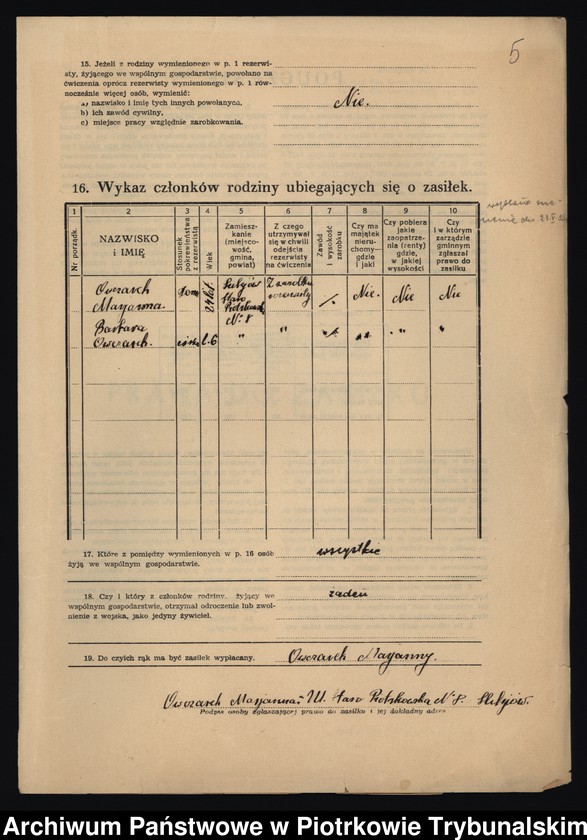 5
15. Jeżeli z rodziny wymienionego w p. 1 rezerwi-
sty, żyjącego we wspólnym gospodarstwie, powołano na
ćwiczenia oprócz rezerwisty wymienionego w p. 1 rów-
nocześnie więcej osób, wymienić:
a) nazwisko i imię tych innych powołanych,
b) ich zawód cywilny,
c) miejsce pracy względnie zarobkowania.
Nie.
16. Wykaz członków rodziny ubiegających się o zasiłek.
1 2 3 4 5 6 7 8 9 10
Nr porządk.
NAZWISKO
i IMIĘ
Stosunek
pokrewieństwa
z rezerwistą
Wiek
Zamiesz-
kanie
(miejsco-
wość,
gmina,
powiat)
Z czego
utrzymywał
się w chwili
odejścia
rezerwisty
na ćwiczenia
Zawód
i wysokość
zarobku
Czy ma
majątek
nieru-
chomy—
gdzie
i jaki
Czy pobiera
jakie
zaopatrze-
nia (renty)
gdzie,
w jakiej
wysokości
Czy
i w którym
zarządzie
gminnym
zgłaszał
prawo do
zasiłku
Owczarek
Maryanna
żona
24 lat
Sulejów
Staro
Nr 8
Z zarobku
/.
Nie.
Nie
Nie
Barbara
Owczarek.
córka
l. 6
"
"
"
"
"
"
17. Które z pomiędzy wymienionych w p. 16 osób
żyją we wspólnym gospodarstwie.
wszystkie
18. Czy i który z członków rodziny, żyjący we
wspólnym gospodarstwie, otrzymał odroczenie lub zwol-
nienie z wojska, jako jedyny żywiciel.
żaden
19. Do czyich rąk ma być zasiłek wypłacany.
Owczarek Maryanny.
Owczarek Marjanna Ul. Staro Nr 8. Sulejów.
Podpis osoby zgłaszającej prawo do zasiłku i jej dokładny adres
Archiwum Państwowe w Piotrkowie Trybunalskim